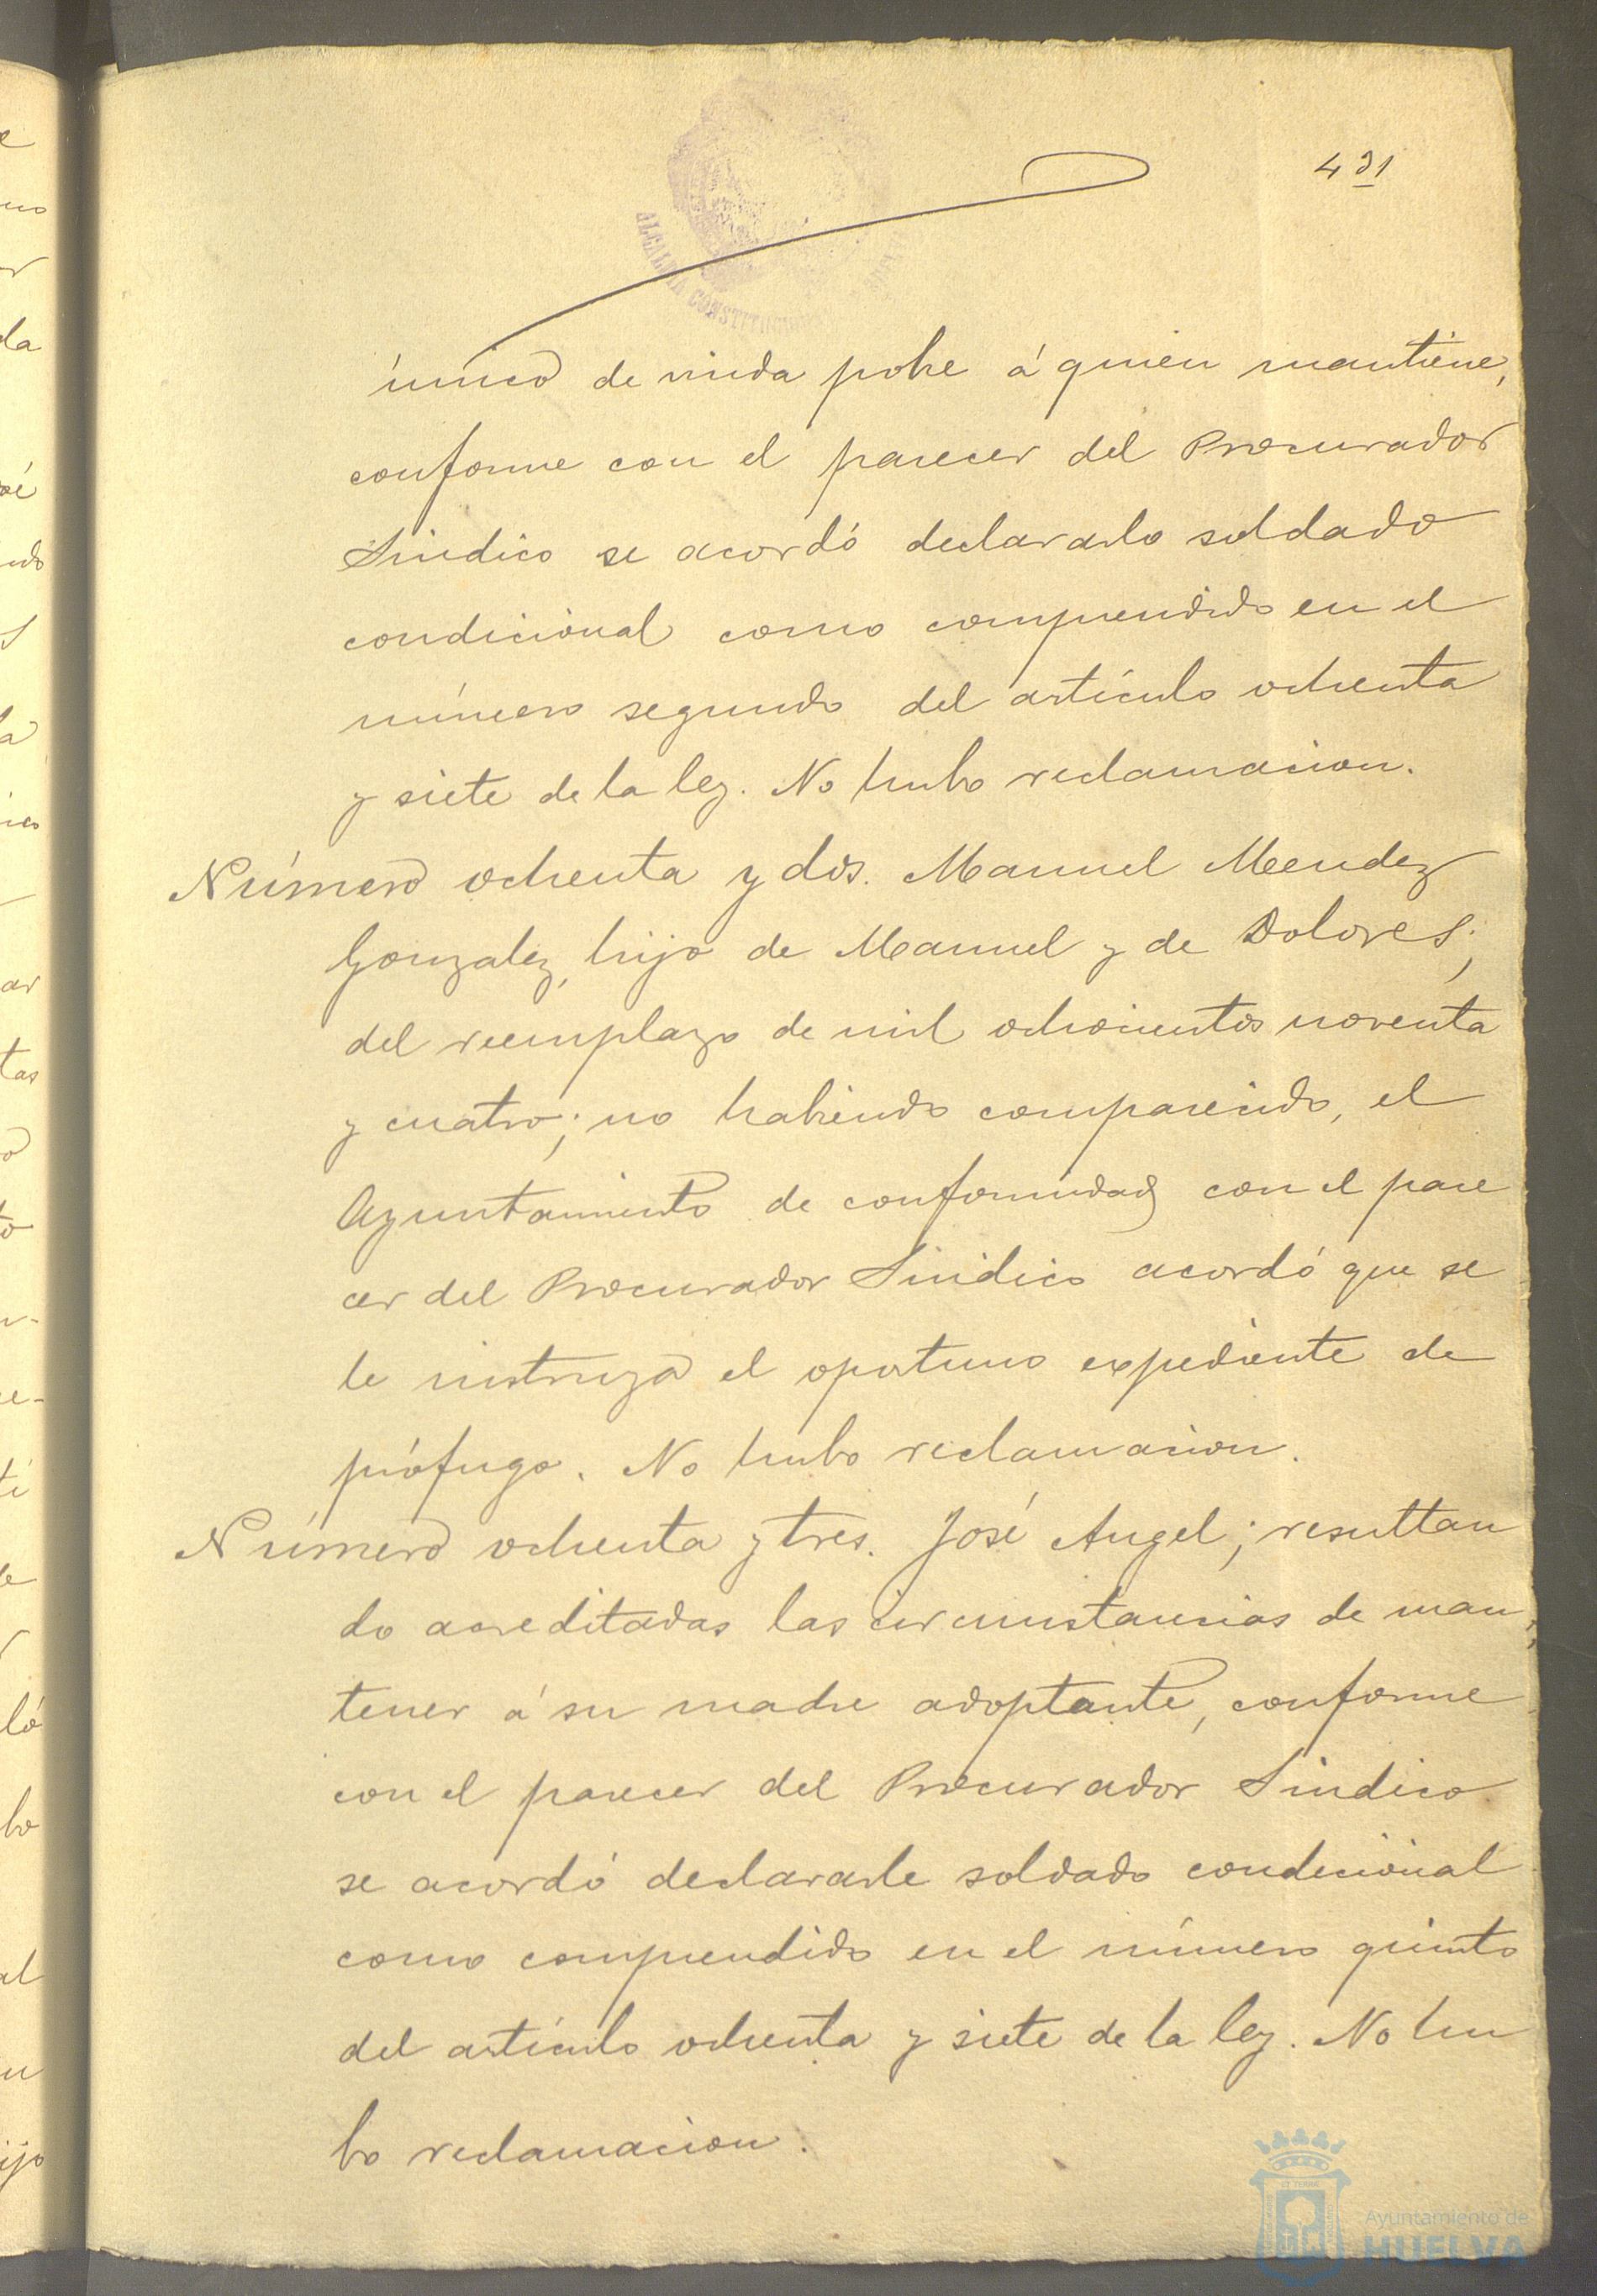 431
ALCALDIA CONSTITUCIONAL
único de viuda pobre á quien mantiene,
conforme con el parecer del Procurador
Sindico se acordó declararlo soldado
condicional como comprendido en el
número segundo del artículo ochenta
y siete de la ley. No hubo reclamacion.
Número ochenta y dos. Manuel Mendez
Gonzalez, hijo de Manuel y de Dolores;
del reemplazo de mil ochocientos noventa
y cuatro; no habiendo comparecido, el
Ayuntamiento de conformidad con el pare
cer del Procurador Sindico acordó que se
le instruya el oportuno expediente de
prófugo. No hubo reclamacion.
Número ochenta y tres. José Angel; resultan
do acreditadas las circunstancias de man
tener á su madre adoptante, conforme
con el parecer del Procurador Sindico
se acordó declararle soldado condicional
como comprendido en el número quinto
del artículo ochenta y siete de la ley. No hu
bo reclamacion.
Ayuntamiento de
HUELVA